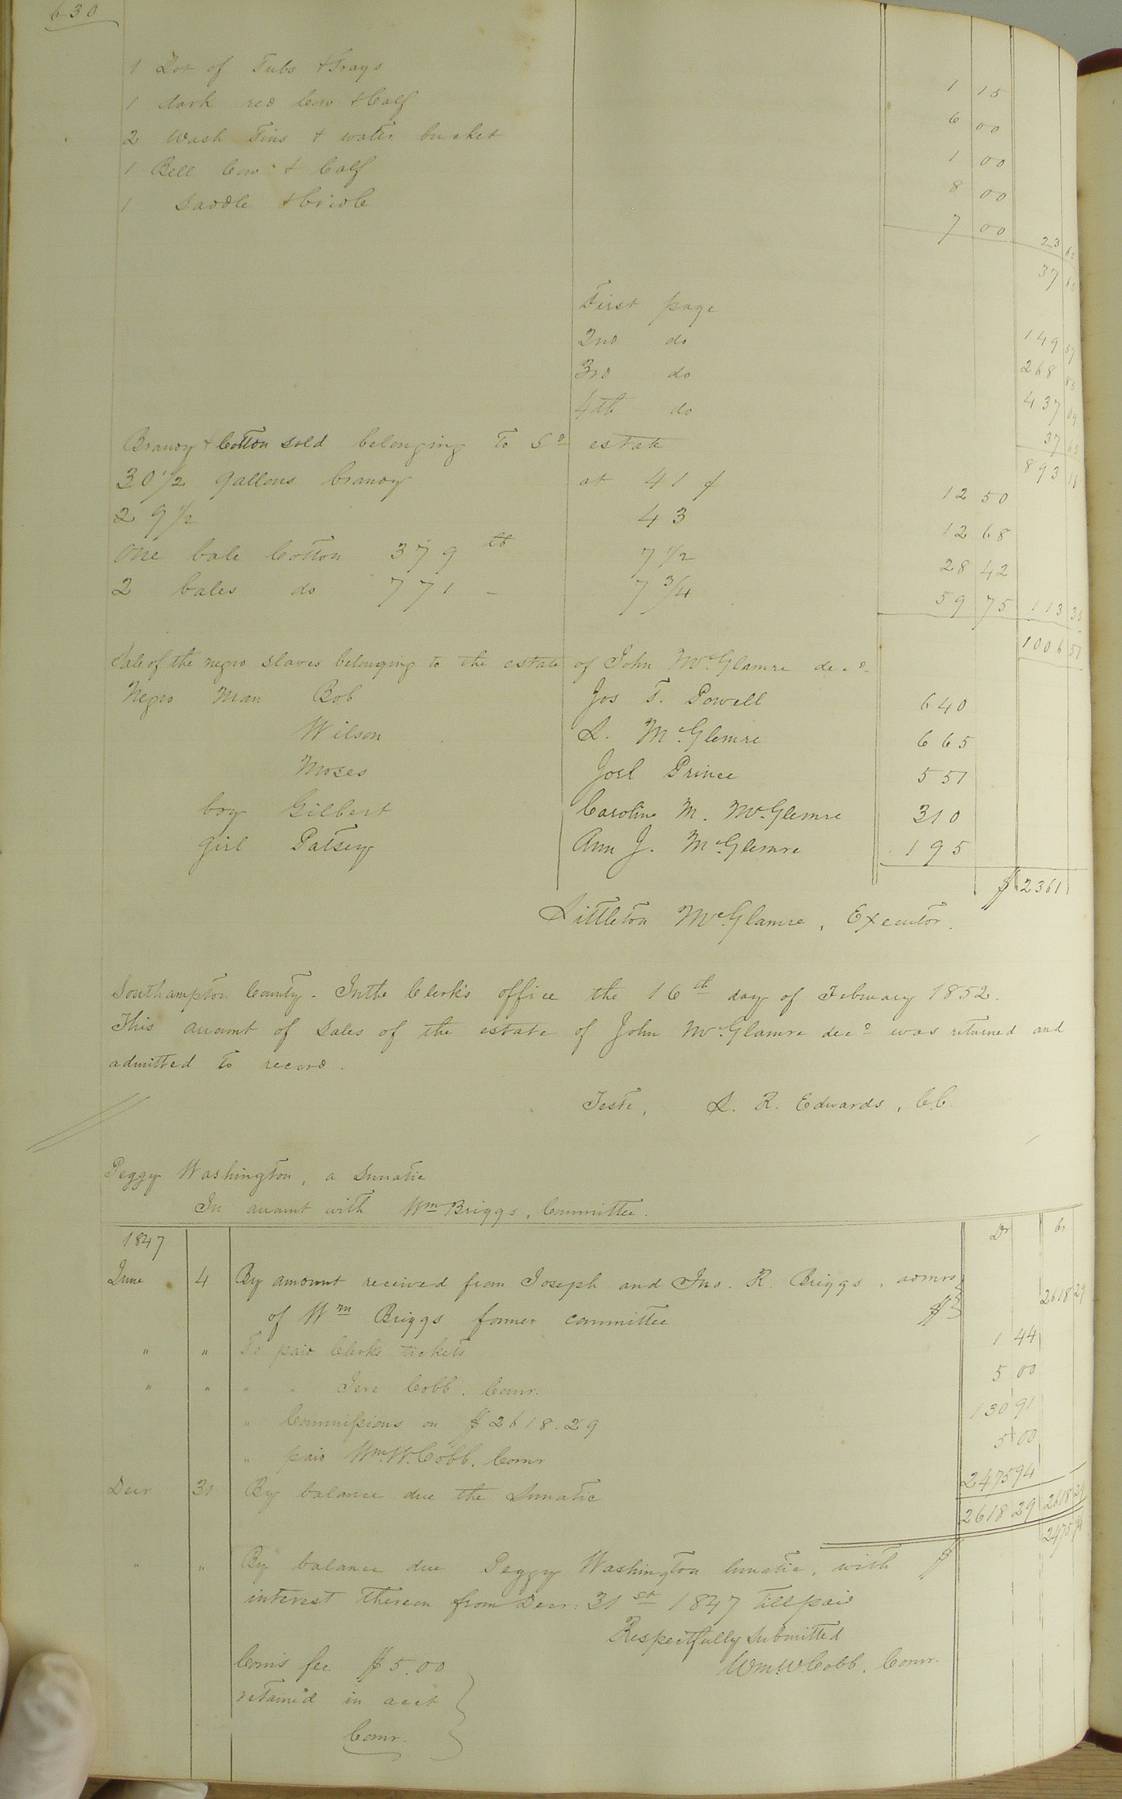 630
1 Lot of Tubs & Trays 1 15
1 dark red Cow & Calf 6 00
2 Wash Tins & water bucket 1 00
1 Bell Cow & Calf 8 00
1 Saddle & bridle 7 00 23
37
First page 149
2nd do 268
3rd do 437
4th do 37
Brandy & Cotton sold belonging to sd estate 893
30 1/2 gallons brandy at 41 ¢ 12 50
29 1/2 43 12 68
One bale Cotton 379 lb 7 1/2 28 42
2 bales do 771 - 7 3/4 59 75 113
1006 51
Sale of the negro slaves belonging to the estate of John McGlamre decd
Negro Man Bob Jos T. Powell 640
Wilson L. McGlemre 665
Moses Joel Prince 551
boy Gilbert Caroline M. McGlemre 310
girl Patsey Ann J. McGlemre 195
$ 2361
Littleton McGlamre, Executor.
Southampton County. In the Clerk's office the 16th day of February 1852.
This account of Sales of the estate of John McGlamre decd was returned and
admitted to record.
Teste, L. R. Edwards, C.C.
Peggy Washington, a Lunatic
In account with Wm Briggs, Committee.
1847 Dr Cr
June 4 By amount received from Joseph and Jno. R. Briggs, admrs
of Wm Briggs former committee $ 2618 29
" " To paid Clerks tickets 1 44
" " " " Jere Cobb, Comr. 5 00
" Commissions on $2618.29 130 91
" paid Wm. W. Cobb, Comr 5 00
Decr 31 By balance due the Lunatic 2475 94
2618 29 2618 29
" " By balance due Peggy Washington lunatic, with $ 2475 94
interest thereon from Decr. 31st 1847 till paid
Respectfully Submitted
Wm. W. Cobb, Comr.
Com's fee $5.00
retained in acct
Comr.